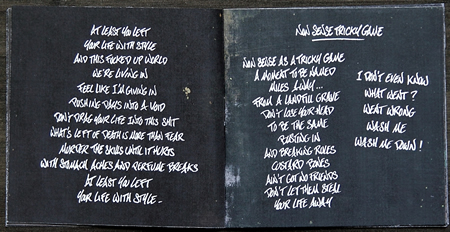 AT LEAST YOU LEFT
YOUR LIFE WITH STYLE
AND THIS FUCKED UP WORLD
WE'RE LIVING IN
FEEL LIKE I'M GIVING IN
PUSHING DAYS INTO A VOID
DON'T DRAG YOUR LIFE INTO THIS SHIT
WHAT'S LEFT OF DEATH IS MORE THAN FEAR
MURDER THE SKULLS UNTIL IT HURTS
WITH STOMACH ACHES AND PERFUME BREAKS
AT LEAST YOU LEFT
YOUR LIFE WITH STYLE -
NON SENSE TRICKY GAME
NON SENSE AS A TRICKY GAME
A MOMENT TO BE NAMED
MILES AWAY...
FROM A LANDFILL GRAVE
DON'T LOSE YOUR HEAD
TO BE THE SAME
RUSTING IN
AND BREAKING RULES
CUSTARD BONES
AIN'T GOT NO FRIENDS
DON'T LET THEM STEAL
YOUR LIFE AWAY
I DON'T EVEN KNOW
WHAT WENT ?
WENT WRONG
WASH ME
WASH ME DOWN !